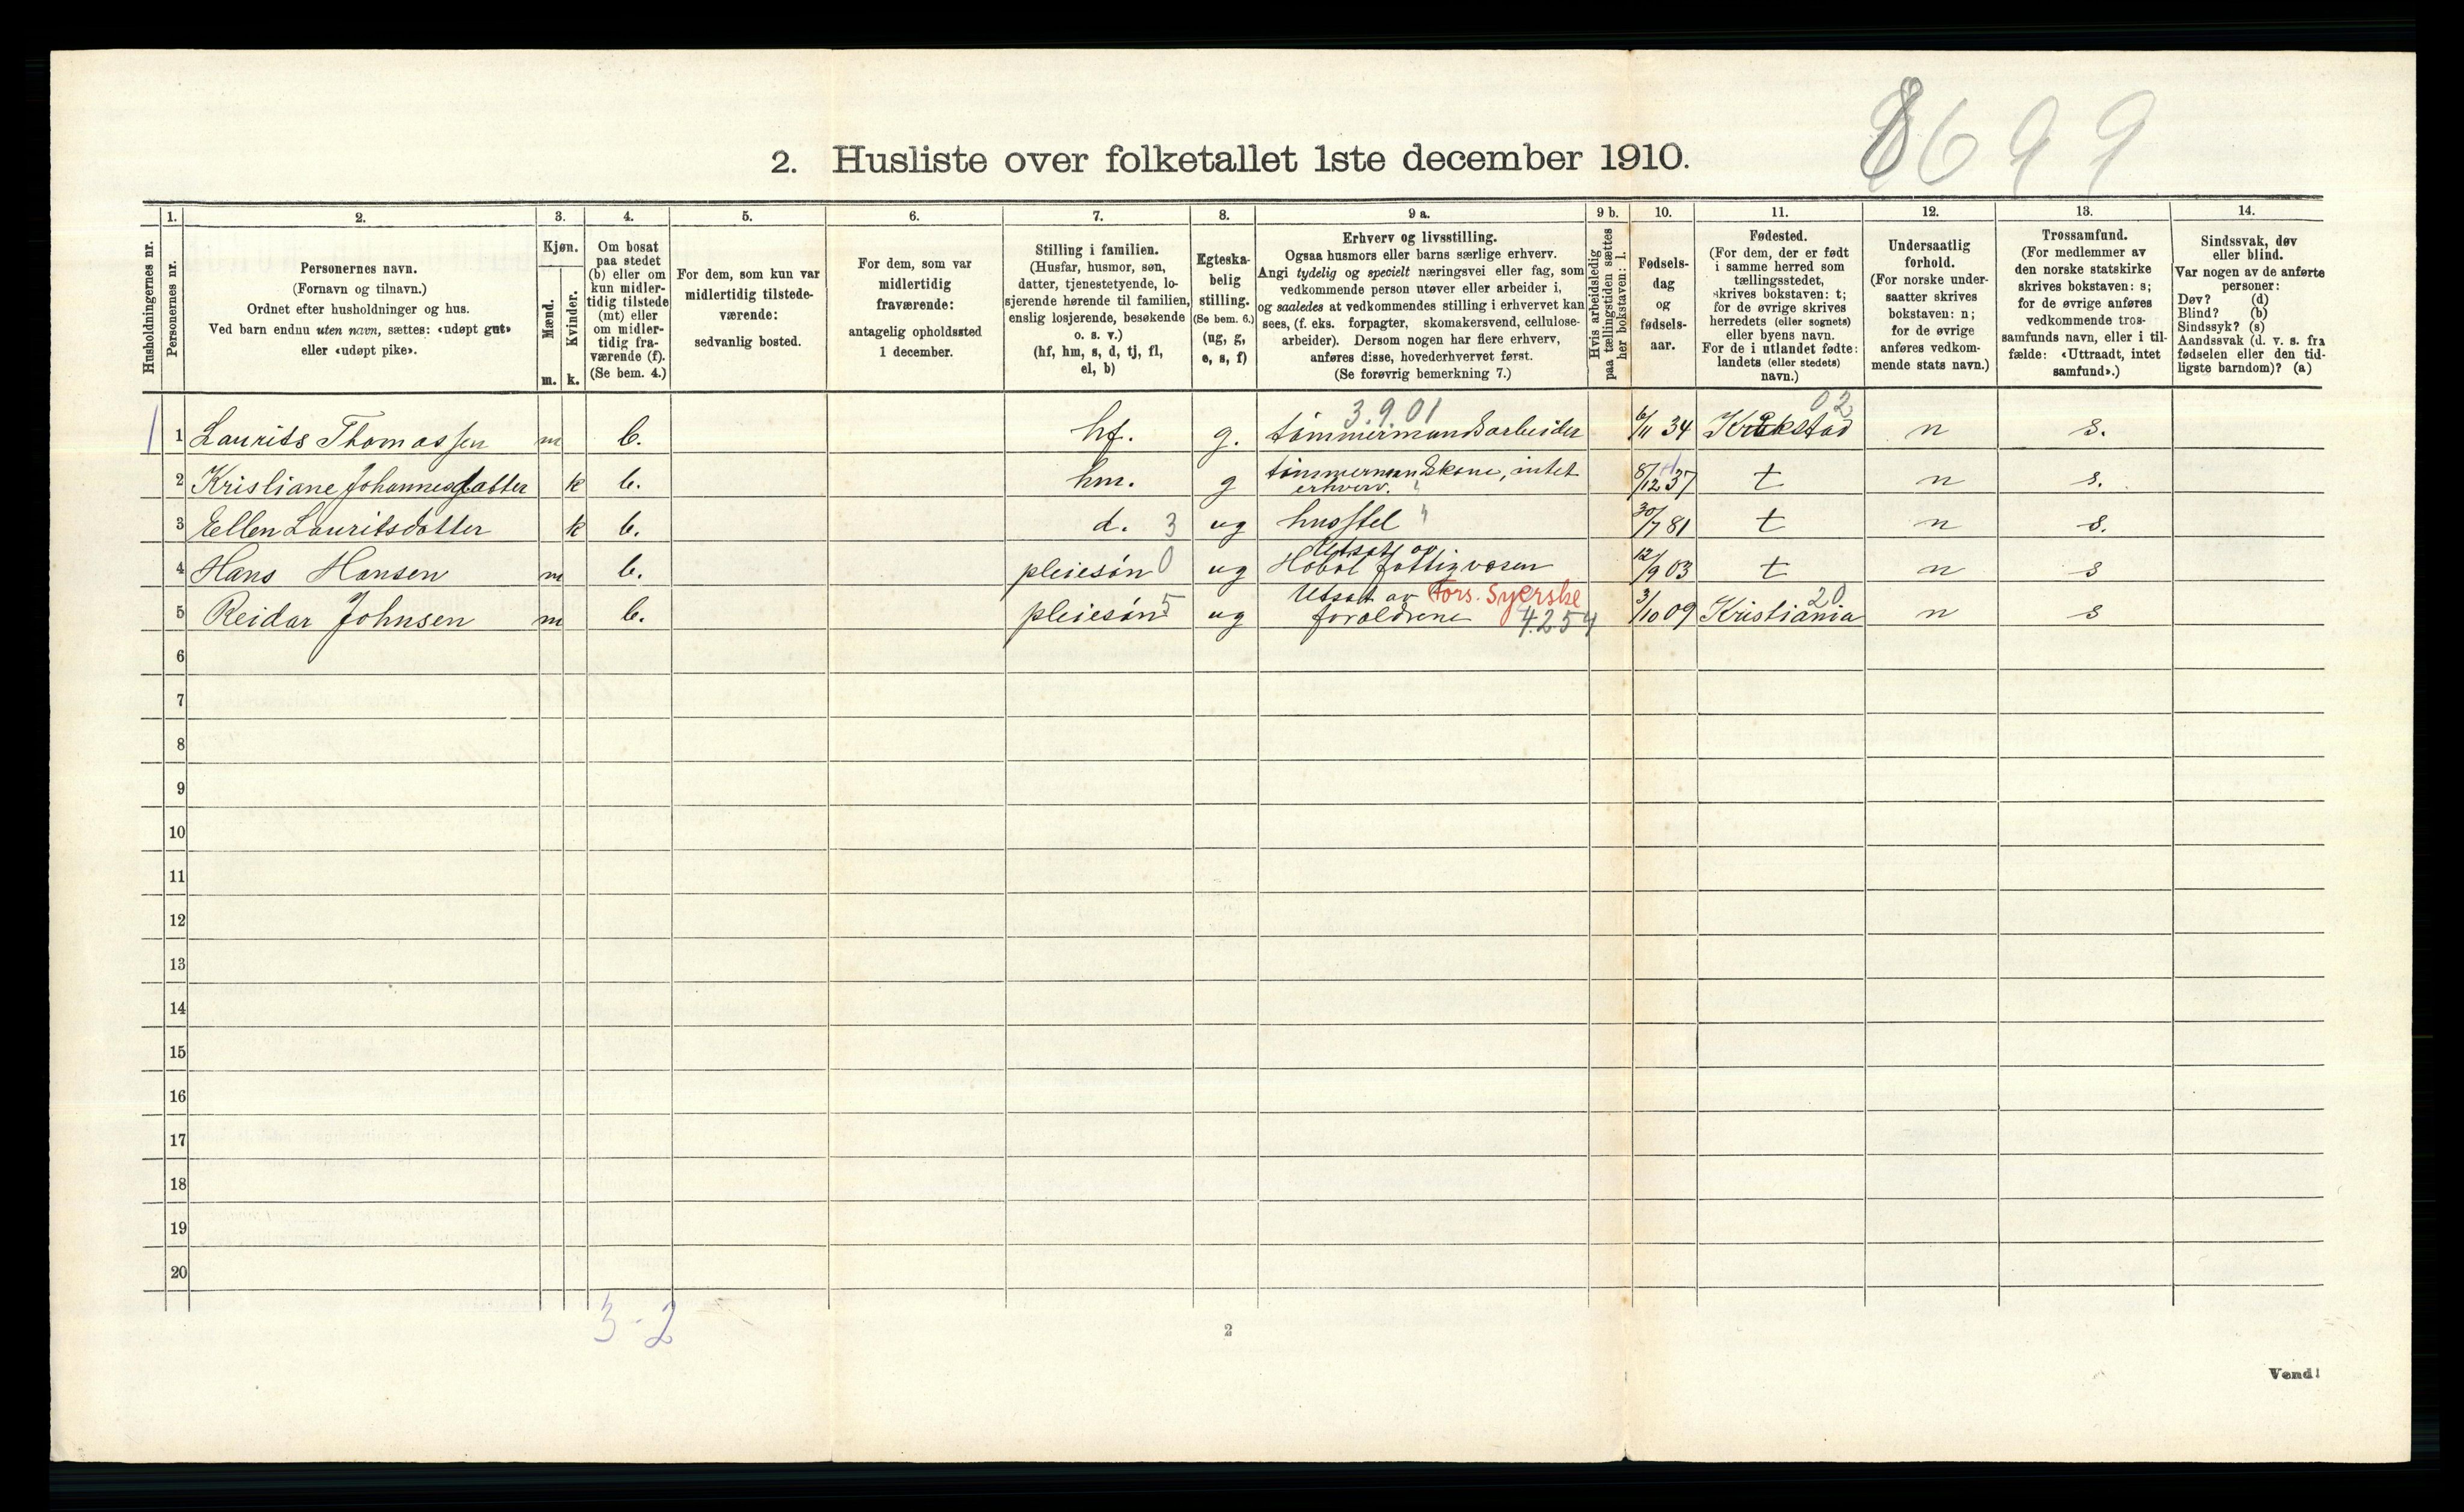 8699
2. Husliste over folketallet 1ste december 1910.
Husholdningernes nr.
1.
Personernes nr.
2.
Personernes navn.
(Fornavn og tilnavn.)
Ordnet efter husholdninger og hus.
Ved barn endnu uten navn, sættes: «udøpt gut»
eller «udøpt pike».
3.
Kjøn.
Mænd.
Kvinder.
m. k.
4.
Om bosat
paa stedet
(b) eller om
kun midler-
tidig tilstede
(mt) eller
om midler-
tidig fra-
værende (f).
(Se bem. 4.)
5.
For dem, som kun var
midlertidig tilstede-
værende:
sedvanlig bosted.
6.
For dem, som var
midlertidig
fraværende:
antagelig opholdssted
1 december.
7.
Stilling i familien.
(Husfar, husmor, søn,
datter, tjenestetyende, lo-
sjerende hørende til familien,
enslig losjerende, besøkende
o. s. v.)
(hf, hm, s, d, tj, fl,
el, b)
8.
Egteska-
belig
stilling.
(Se bem. 6.)
(ug, g,
e, s, f)
9 a.
Erhverv og livsstilling.
Ogsaa husmors eller barns særlige erhverv.
Angi tydelig og specielt næringsvei eller fag, som
vedkommende person utøver eller arbeider i,
og saaledes at vedkommendes stilling i erhvervet kan
sees, (f. eks. forpagter, skomakersvend, cellulose-
arbeider). Dersom nogen har flere erhverv,
anføres disse, hovederhvervet først.
(Se forøvrig bemerkning 7.)
9 b.
Hvis arbeidsledig
paa tællingstiden sættes
her bokstaven: l.
10.
Fødsels-
dag
og
fødsels-
aar.
11.
Fødested.
(For dem, der er født
i samme herred som
tællingsstedet,
skrives bokstaven: t;
for de øvrige skrives
herredets (eller sognets)
eller byens navn.
For de i utlandet fødte:
landets (eller stedets)
navn.)
12.
Undersaatlig
forhold.
(For norske under-
saatter skrives
bokstaven: n;
for de øvrige
anføres vedkom-
mende stats navn.)
13.
Trossamfund.
(For medlemmer av
den norske statskirke
skrives bokstaven: s;
for de øvrige anføres
vedkommende tros-
samfunds navn, eller i til-
fælde: «Uttraadt, intet
samfund».)
14.
Sindssvak, døv
eller blind.
Var nogen av de anførte
personer:
Døv? (d)
Blind? (b)
Sindssyk? (s)
Aandssvak (d. v. s. fra
fødselen eller den tid-
ligste barndom)? (a)
3.9.01 02
1 1 Laurits Thomassen m b. hf. g. tømmermandsarbeider 6/11 34 Kraakstad n s.
2 Kristiane Johannesdatter k b. hm. g tømmermandskone, intet erhverv. 8/12 37 t n s.
3 Ellen Lauritsdatter k b. d. 3 ug husstel 30/7 81 t n s.
4 Hans Hansen m b. pleiesøn 0 ug Utsat av Hobøl fattigvæsen 12/9 03 t n s
5 Reidar Johnsen m b. pleiesøn 5 ug Utsat av forældrene Fors. Syerske 4.254 3/10 09 Kristiania 20 n s
6
7
8
9
10
11
12
13
14
15
16
17
18
19
20
3-2
2
Vend!